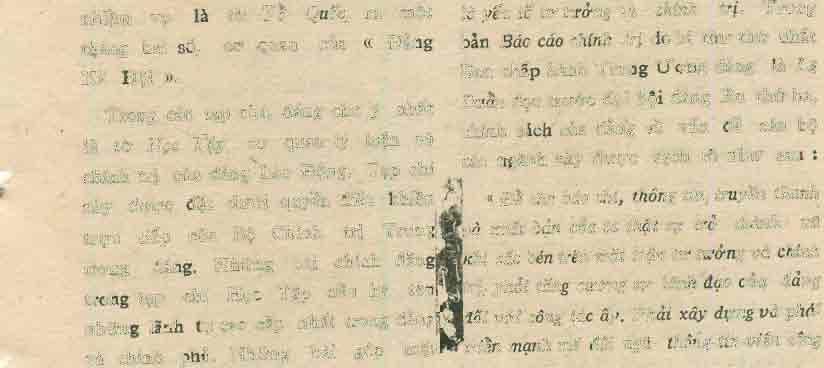 nhiệm vụ là tờ Tổ Quốc ra một
tháng hai số, cơ quan của « Đảng
Xã Hội ».
Trong các tạp chí, đáng chú ý nhất
là tờ Học Tập, cơ quan lý luận và
chính trị của đảng Lao Động. Tạp chí
này được đặt dưới quyền điều khiển
trực tiếp của Bộ Chính trị Trung
ương đảng. Những bài chính đăng
trong tạp chí Học Tập đều ký tên
những lãnh tụ cao cấp nhất trong đảng
và chính phủ. Những bài góp một
là yếu tố tư tưởng và chính trị. Trong
bản Báo cáo chính trị do bí thư thứ nhất
Ban chấp hành Trung Ương đảng là Lê
Duẩn đọc trước đại hội đảng lần thứ ba,
chính sách của đảng về vấn đề cán bộ
các ngành này được vạch rõ như sau :
« Để cho báo chí, thông tin, truyền thanh
và xuất bản của ta thật sự trở thành vũ
khí sắc bén trên mặt trận tư tưởng và chính
trị, phải tăng cường sự lãnh đạo của đảng
đối với công tác ấy. Phải xây dựng và phát
triển mạnh mẽ đội ngũ thông-tin viên công